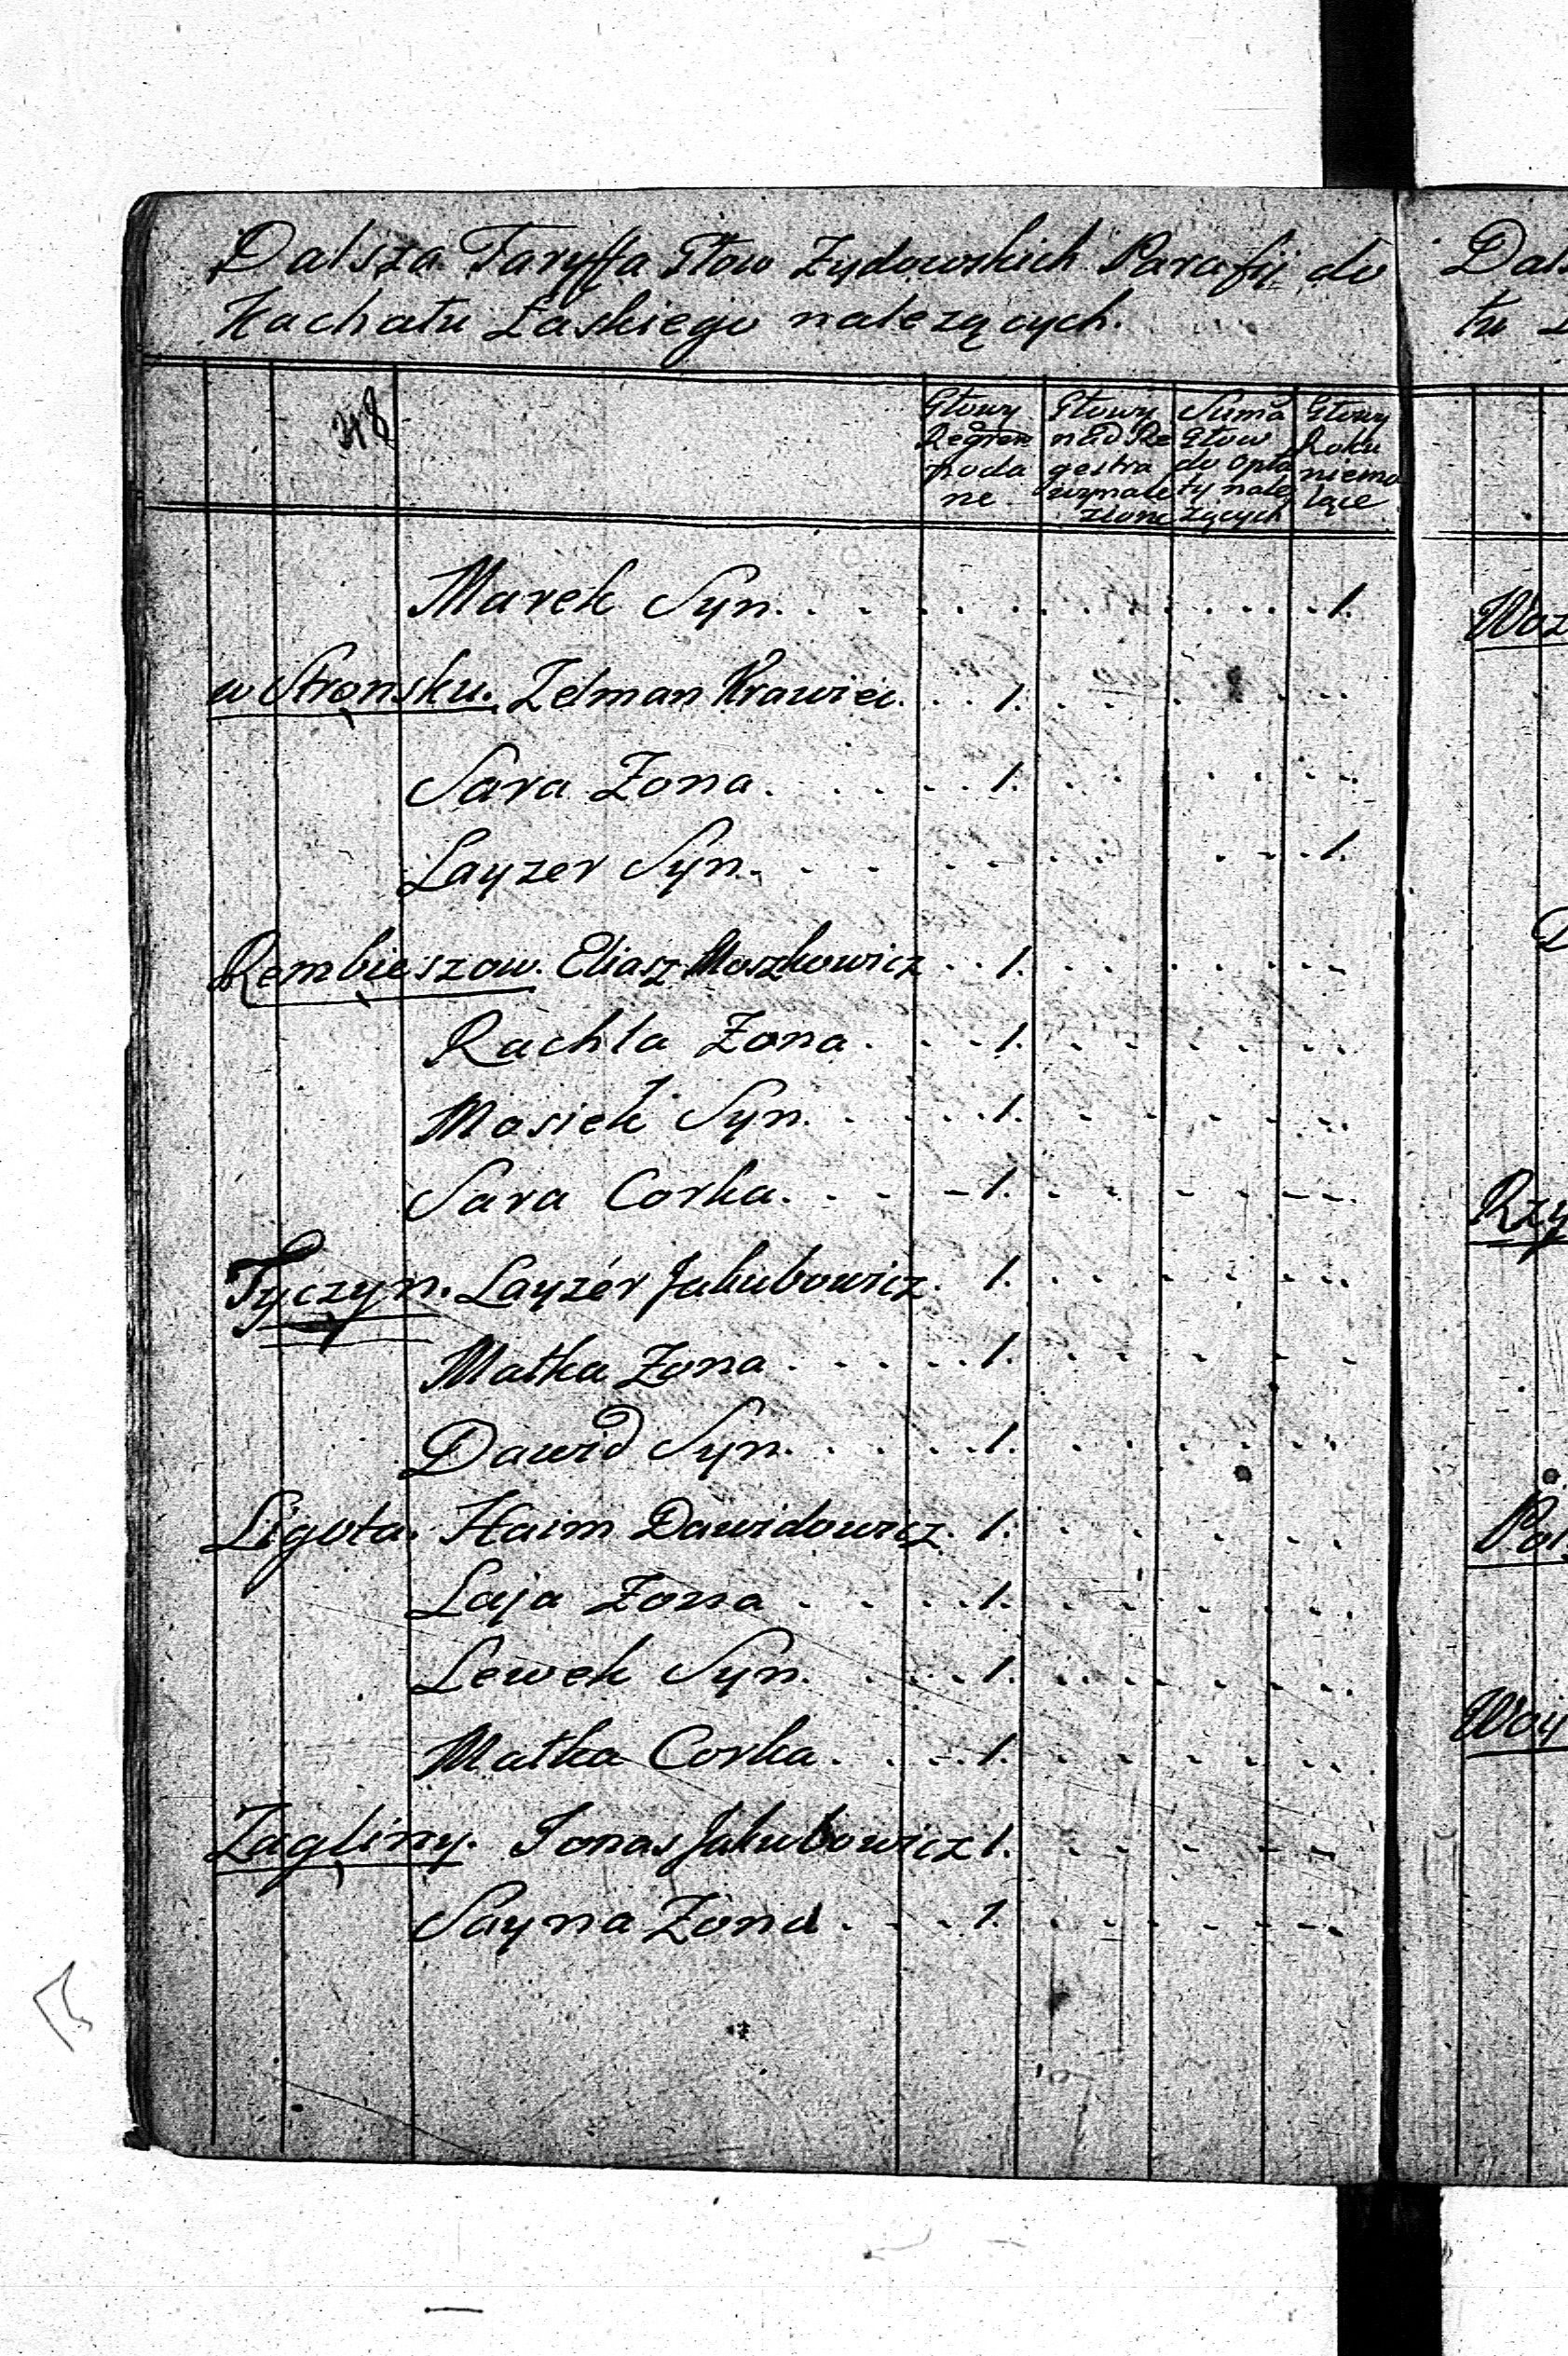 Dalsza Taryffa Głow Zydowskich Parafij do
Kachału Łaskiego nalezących.
Głowy Regrem poda ne
Głowy nad Re gestra wynale zione
Suma Głow do opła ty nale zących
Głowy Roku niema iące
Marek Syn. 1.
w Strońsku. Zelman Krawiec. 1.
Sara Zona. 1.
Layzer Syn. 1.
Rembieszow. Eliasz Moszkowicz 1.
Rachla Zona. 1.
Mosiek Syn. 1.
Sara Corka. 1.
Tyczyn. Layzer Jakubowicz. 1.
Małka Zona. 1.
Dawid Syn. 1.
Ligota. Haim Dawidowicz. 1.
Laja Zona. 1.
Lewek Syn. 1.
Małka Corka. 1.
Zagliny. Jonas Jakubowicz 1.
Sayna Zona. 1.